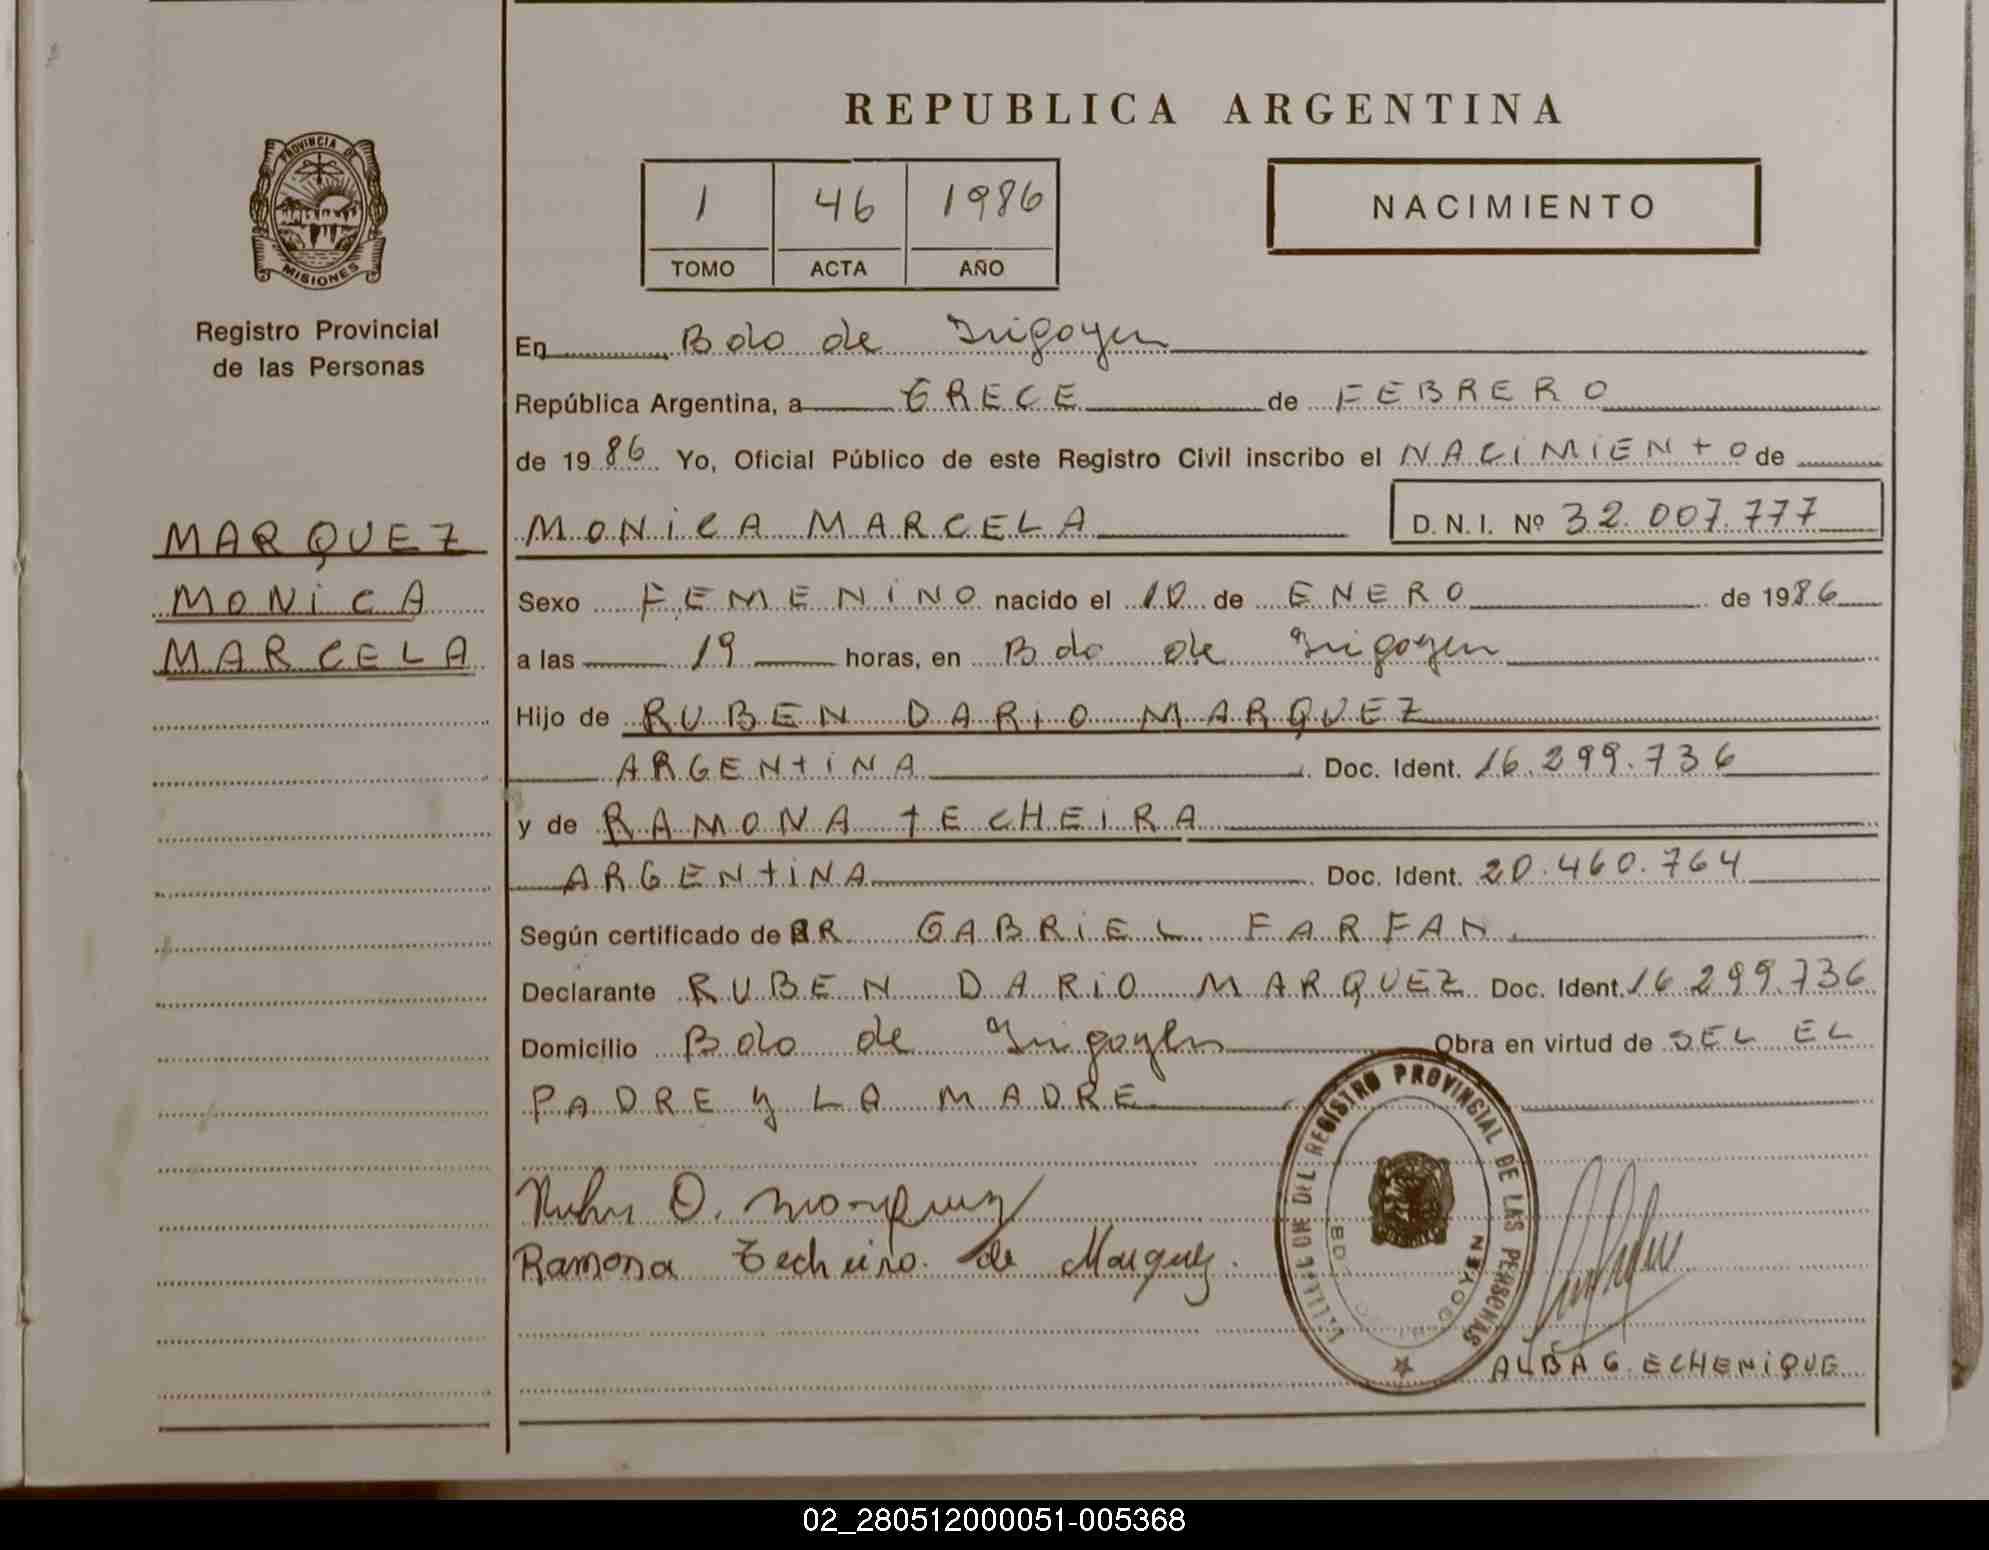 REPUBLICA ARGENTINA
PROVINCIA DE
MISIONES
Registro Provincial
de las Personas
1 46 1986
TOMO ACTA AÑO
NACIMIENTO
En Bdo de Irigoyen
República Argentina, a GRECE de FEBRERO
de 1986 Yo, Oficial Público de este Registro Civil inscribo el NACIMIENTO de
MARQUEZ
MONICA
MARCELA
MONICA MARCELA D.N.I. Nº 32.007.777
Sexo FEMENINO nacido el 10 de ENERO de 1986
a las 19 horas, en Bdo de Irigoyen
Hijo de RUBEN DARIO MARQUEZ
ARGENTINA Doc. Ident. 16.299.736
y de RAMONA TECHEIRA
ARGENTINA Doc. Ident. 20.460.764
Según certificado de DR GABRIEL FARFAN
Declarante RUBEN DARIO MARQUEZ Doc. Ident. 16.299.736
Domicilio Bdo de Irigoyen Obra en virtud de SEL EL
PADRE y LA MADRE
Ruben D. Marquez
Ramona Techeira de Marquez.
DEL REGISTRO PROVINCIAL DE LAS PERSONAS
ALBA G. ECHENIQUE
02_280512000051-005368